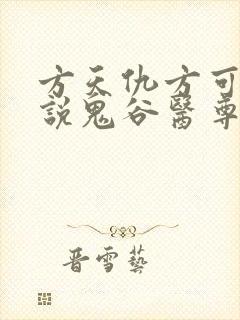 方天仇方可
說鬼谷醫尊
晋雪藝